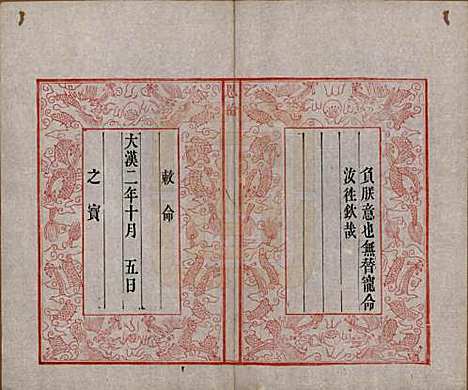 負朕意也無替寵命
汝往欽哉
敕命
大漢二年十月 五日
之寶